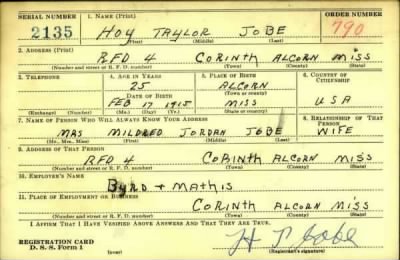 SERIAL NUMBER 1. NAME (Print) ORDER NUMBER
2135 HOY TAYLOR JOBE 790
(First) (Middle) (Last)
2. ADDRESS (Print)
RFD 4 CORINTH ALCORN MISS
(Number and street or R. F. D. number) (Town) (County) (State)
3. TELEPHONE 4. AGE IN YEARS 5. PLACE OF BIRTH 6. COUNTRY OF CITIZENSHIP
25 ALCORN
DATE OF BIRTH (Town or county)
FEB 17 1915 MISS USA
(Exchange) (Number) (Mo.) (Day) (Yr.) (State or country)
7. NAME OF PERSON WHO WILL ALWAYS KNOW YOUR ADDRESS 8. RELATIONSHIP OF THAT PERSON
MRS MILDRED JORDAN JOBE WIFE
(Mr., Mrs., Miss) (First) (Middle) (Last)
9. ADDRESS OF THAT PERSON
RFD 4 CORINTH ALCORN MISS
(Number and street or R. F. D. number) (Town) (County) (State)
10. EMPLOYER'S NAME
BYRD + MATHIS
11. PLACE OF EMPLOYMENT OR BUSINESS
CORINTH ALCORN MISS
(Number and street or R. F. D. number) (Town) (County) (State)
I AFFIRM THAT I HAVE VERIFIED ABOVE ANSWERS AND THAT THEY ARE TRUE.
REGISTRATION CARD H T Jobe
D. S. S. Form 1 (Registrant's signature)